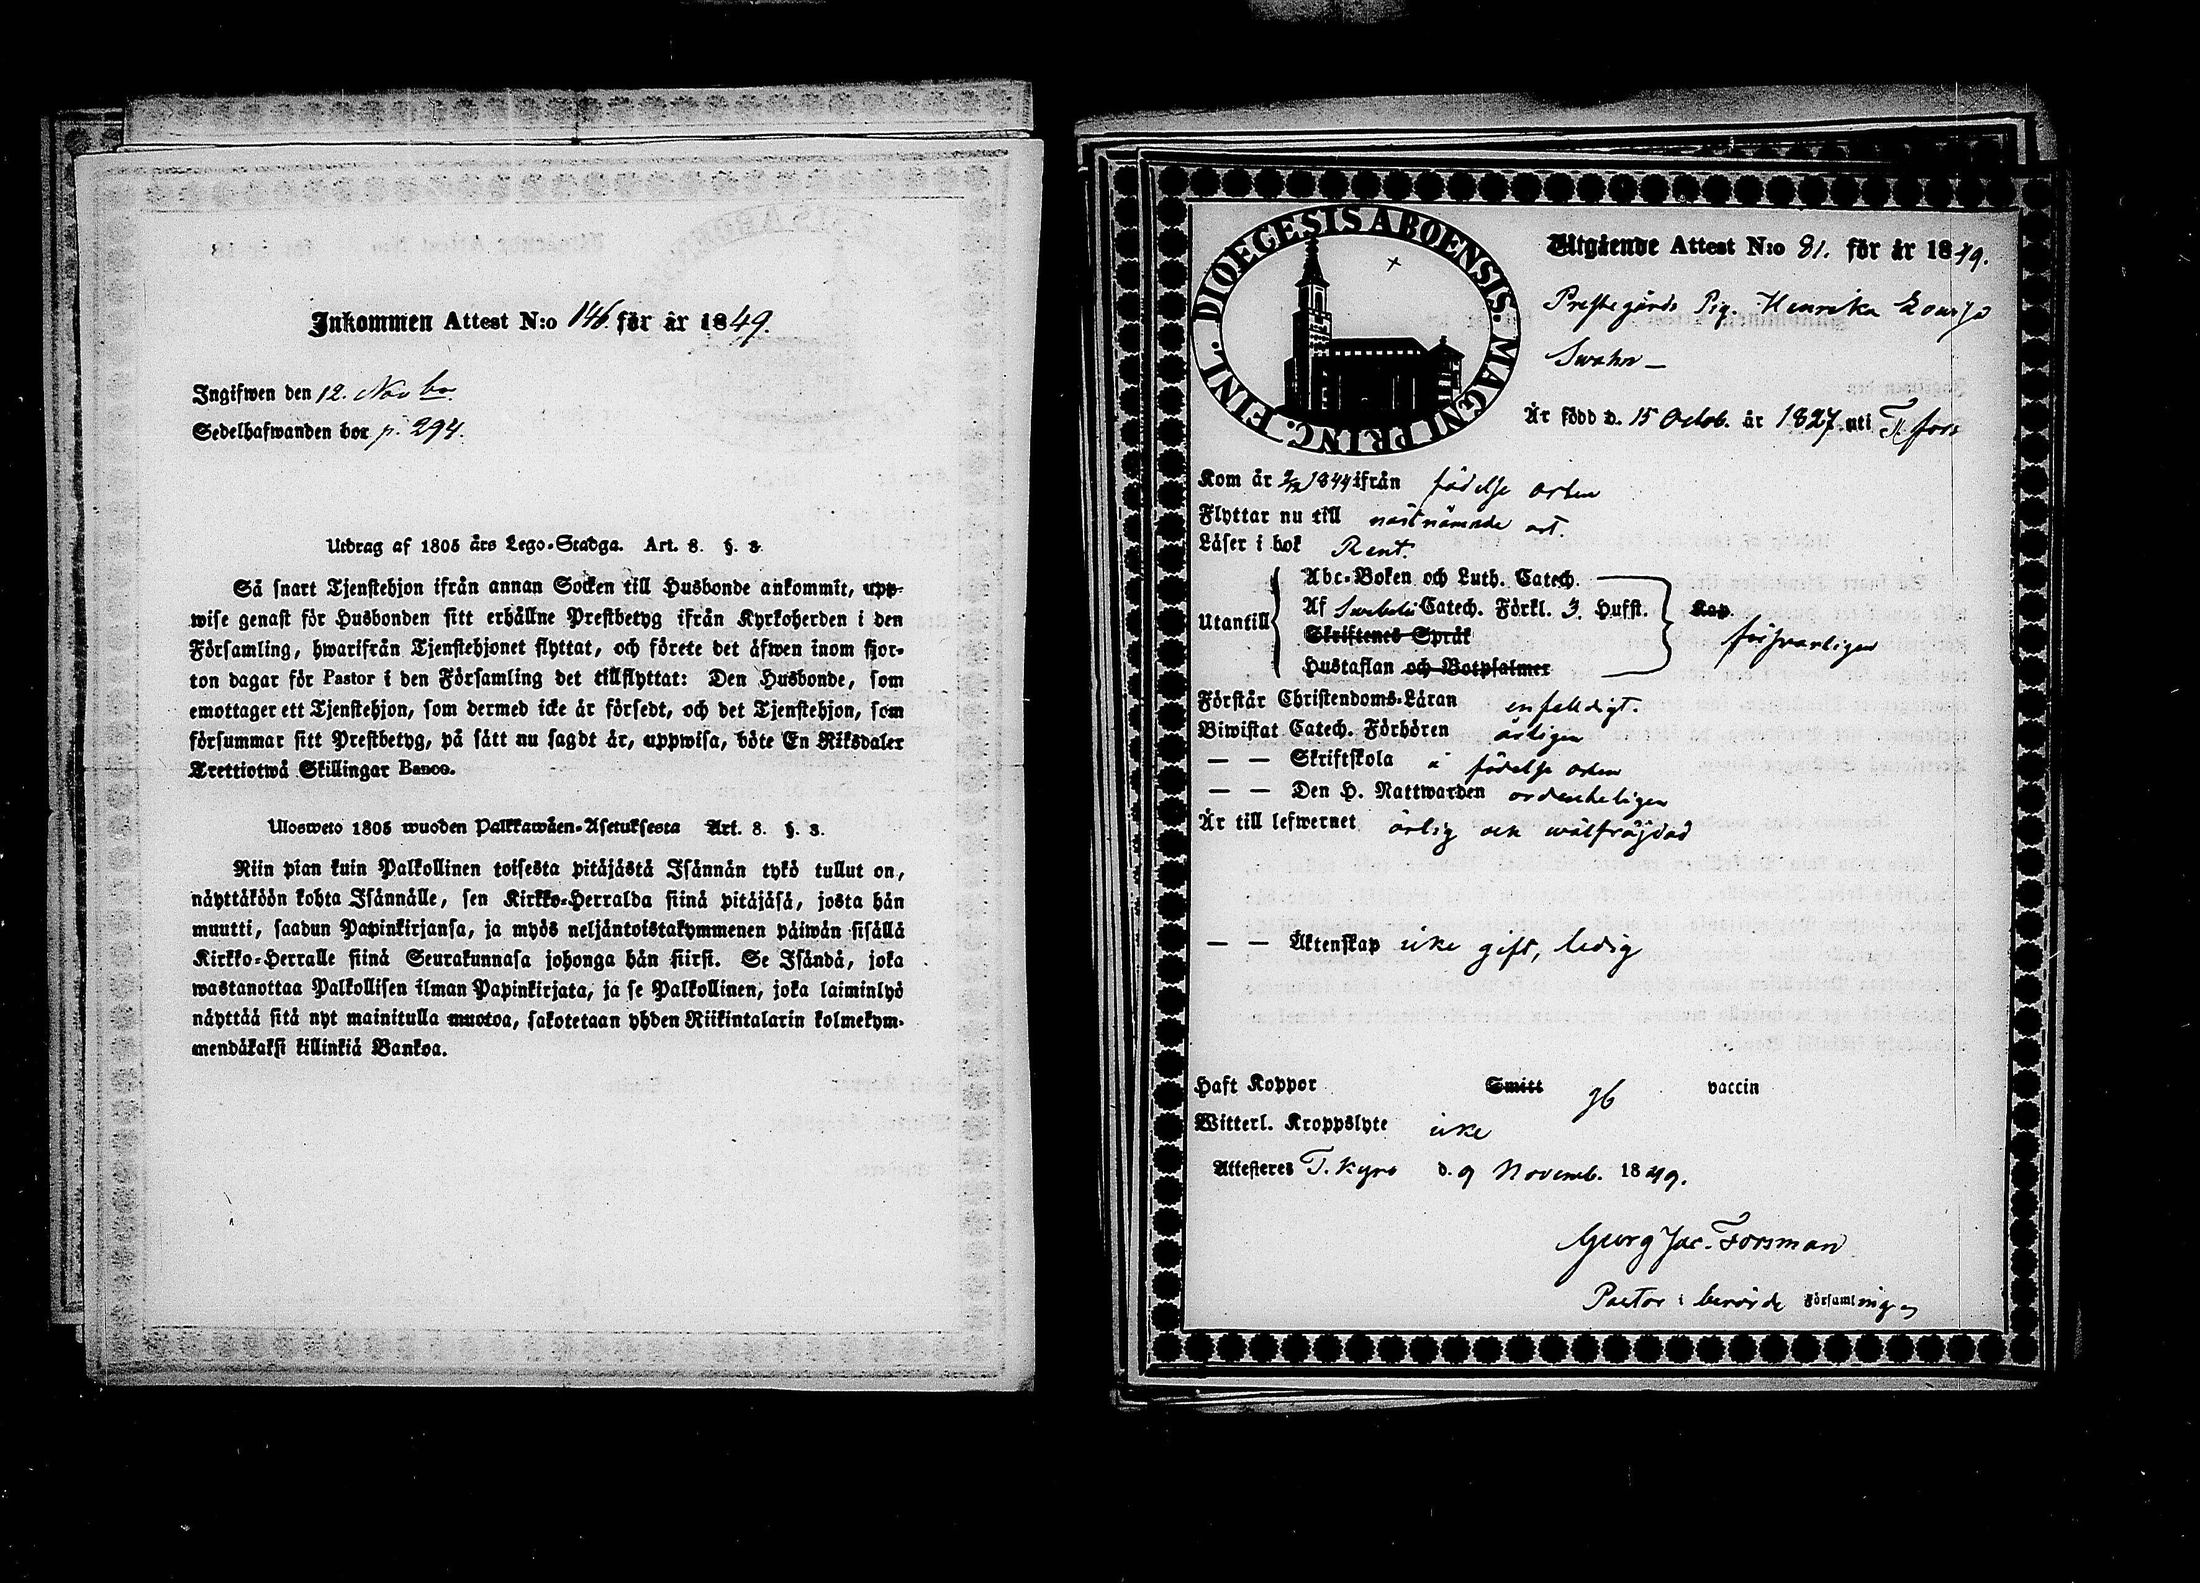 Inkommen Attest N:o 146. för år 1849.
Ingifwen den 12. Novbr.
Sedelhafwanden bor p. 294.
Utdrag af 1805 års Lego-Stadga. Art. 8. §. 3.
Så snart Tjenstehjon ifrån annan Socken till Husbonde ankommit, upp-
wise genast för Husbonden sitt erhållne Prestbetyg ifrån Kyrkoherden i den
Församling, hwarifrån Tjenstehjonet flyttat, och förete det äfwen inom fjor-
ton dagar för Pastor i den Församling det tillflyttat: Den Husbonde, som
emottager ett Tjenstehjon, som dermed icke är försedt, och det Tjenstehjon, som
försummar sitt Prestbetyg, på sätt nu sagdt är, uppwisa, böte En Riksdaler
Trettiotwå Skillingar Banco.
Ulosweto 1805 wuoden Palkkawäen-Asetuksesta Art. 8. §. 3.
Niin pian kuin Palkollinen toisesta pitäjästä Isännän tykö tullut on,
näyttäköön kohta Isännälle, sen Kirkko-Herralda siinä pitäjäsä, josta hän
muutti, saadun Papinkirjansa, ja myös neljäntoistakymmenen päiwän sisällä
Kirkko-Herralle siinä Seurakunnasa johonga hän siirsi. Se Isändä, joka
wastanottaa Palkollisen ilman Papinkirjata, ja se Palkollinen, joka laiminlyö
näyttää sitä nyt mainitulla muotoa, sakotetaan yhden Riikintalarin kolmekym-
mendäkaksi killinkiä Bankoa.
DIOECESIS ABOENSIS. MAGNI PRINC. FINL.
Utgående Attest N:o 81. för år 1849.
Prestegårds Pig. Henrika Lovisa
Swahn
Är född d. 15 Octob. år 1827 uti T. fors
Kom år 1844 ifrån födelse orten
Flyttar nu till nästnämnde ort.
Läser i bok Rent.
Utantill
Abc-Boken och Luth. Catech.
Af Swebeli Catech. Förkl. 3. Hufst. Kap.
Skriftenes Språk
Hustaflan och Botpsalmer
försvarligen
Förstår Christendoms-Läran enfaldigt.
Biwistat Catech. Förhören årligen
— — Skriftskola i födelse orten
— — Den H. Nattwarden ordenteligen
Är till lefwernet ärlig och wälfräjdad
— — Äktenskap icke gift, ledig
Haft Koppor Smitt vaccin
Witterl. Kroppslyte icke
Attesteres T. Kyro d. 9 Novemb. 1849.
Georg Jac. Forsman
Pastor i berörde Församlingen